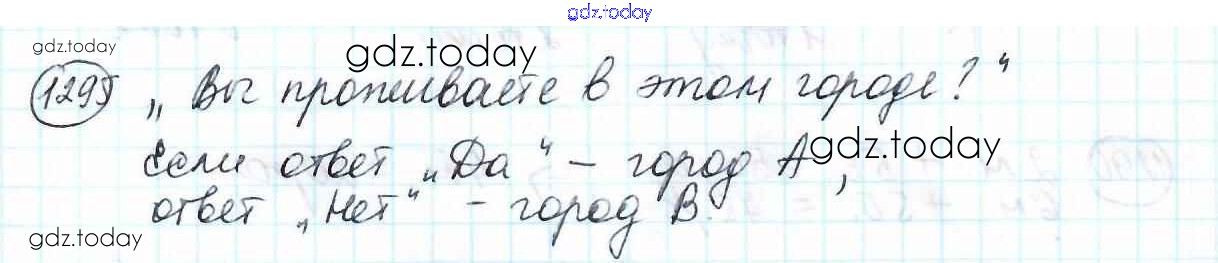 gdz.today
gdz.today
gdz.today
1295 „Вы проживаете в этом городе?“
Если ответ „Да“ – город А,
gdz.today
ответ „Нет“ – город В.
gdz.today